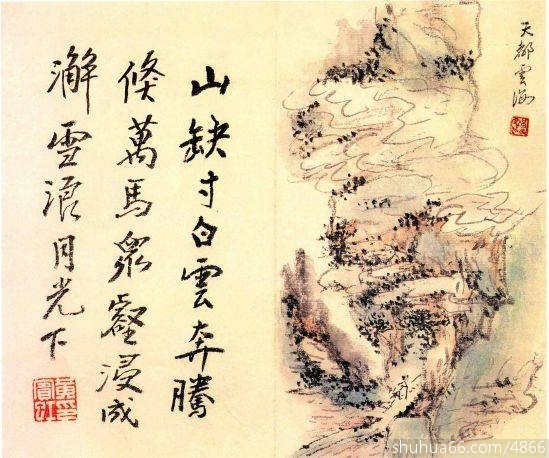 天都雲海
山缺寸白雲奔騰
倏萬馬衆壑浸成
澥雪浪月光下
黃賓虹印
shuhua66.com/4866